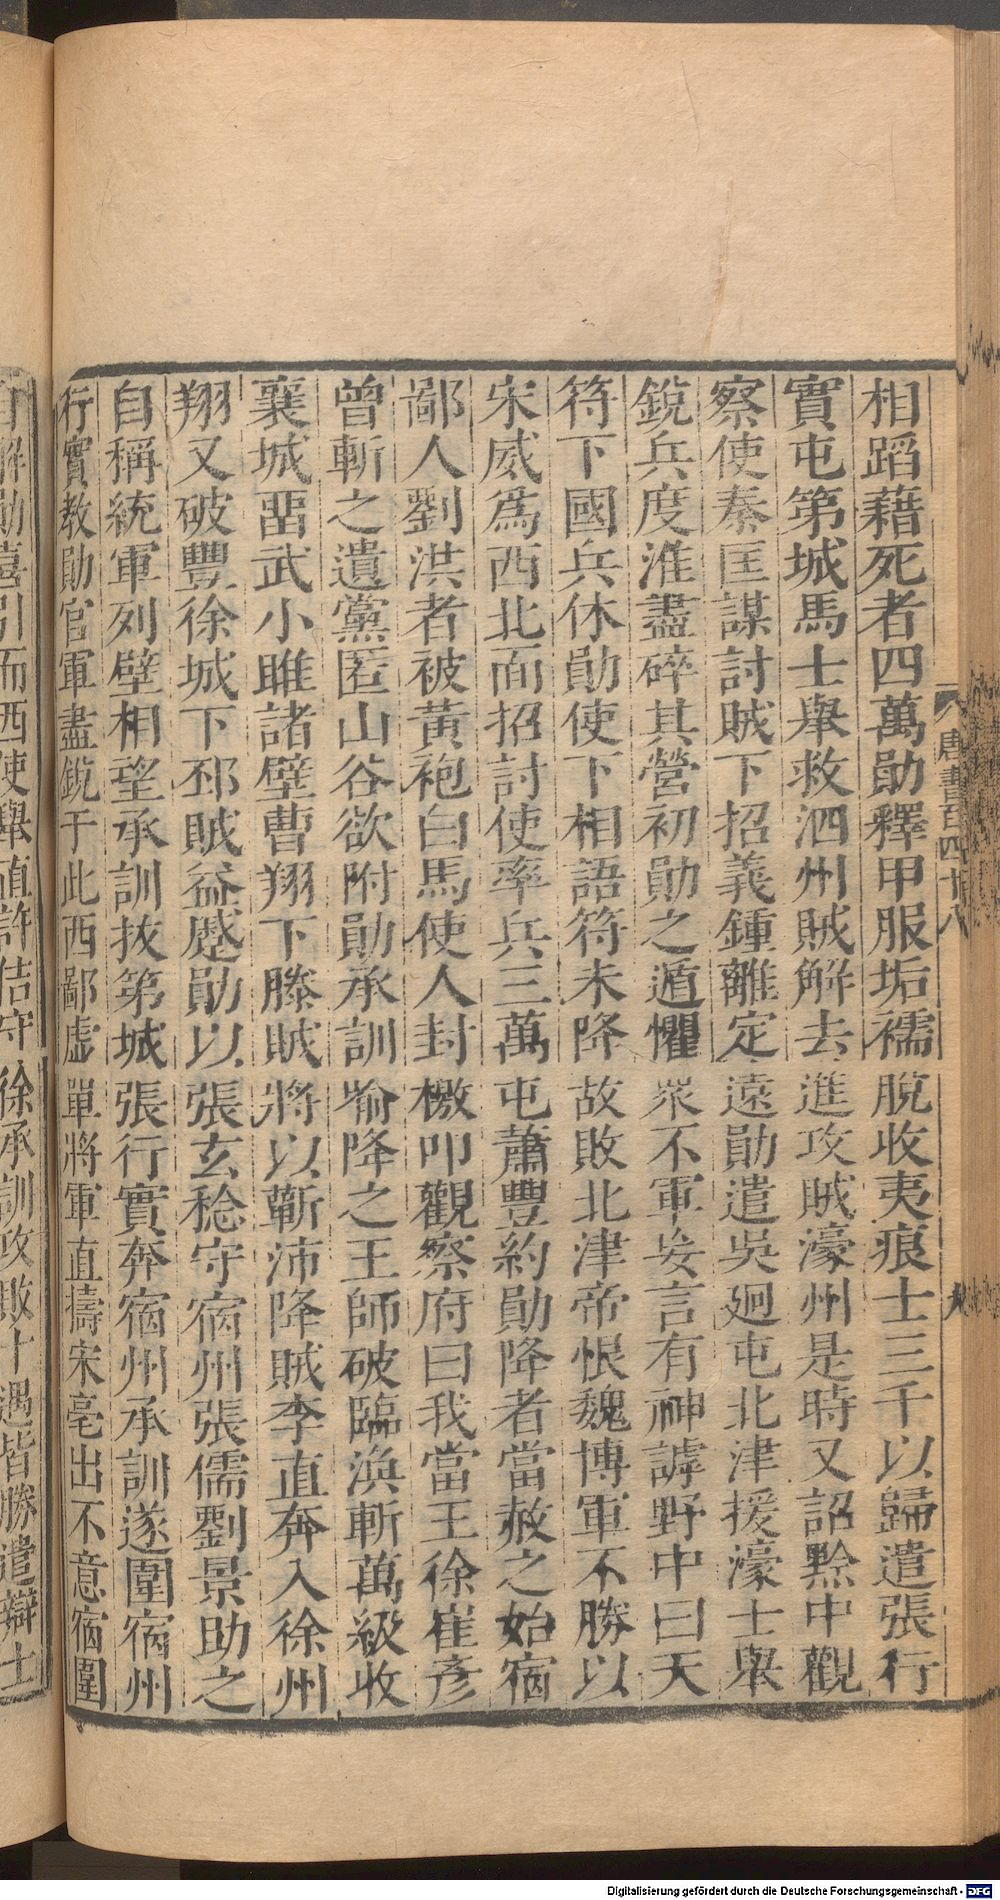 唐書百四十八
九
相蹈藉死者四萬勛釋甲服垢襦脫收夷痕士三千以歸遣張行
實屯第城馬士舉救泗州賊解去進攻賊濠州是時又詔黔中觀
察使秦匡謀討賊下招義鍾離定遠勛遣吳迥屯北津援濠士舉
銳兵度淮盡碎其營初勛之遁懼衆不軍妄言有神謼野中曰天
符下國兵休勛使下相語符未降故敗北津帝恨魏博軍不勝以
宋威爲西北面招討使率兵三萬屯蕭豐約勛降者當赦之始宿
鄙人劉洪者被黃袍白馬使人封檄叩觀察府曰我當王徐崔彥
曾斬之遺黨匿山谷欲附勛承訓喻降之王師破臨渙斬萬級收
襄城畱武小雎諸壁曹翔下滕賊將以蘄沛降賊李直奔入徐州
翔又破豐徐城下邳賊益蹙勛以張玄稔守宿州張儒劉景助之
自稱統軍列壁相望承訓拔第城張行實奔宿州承訓遂圍宿州
行實教勛官軍盡銳于此西鄙虛單將軍直擣宋亳出不意宿圍
自解勛喜引而西使舉直許佶守徐承訓攻敗十遇皆勝遣辯士
Digitalisierung gefördert durch die Deutsche Forschungsgemeinschaft - DFG